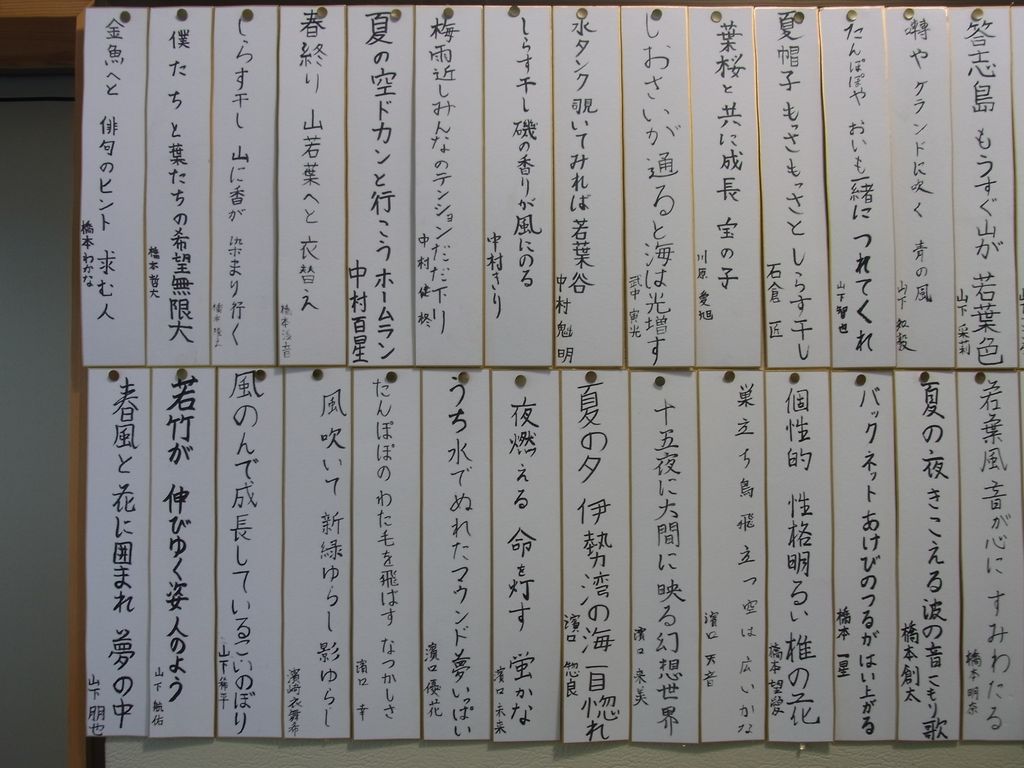 答志島 もうすぐ山が 若葉色
山下 茉莉
囀や グランドに吹く 青の風
たんぽぽや おいも一緒に つれてくれ
山下 智也
夏帽子 もっさもっさと しらす干し
石倉 匠
葉桜と 共に成長 宝の子
川原 愛旭
しおさいが 通ると海は 光増す
武中 寅光
水タンク 覗いてみれば 若葉谷
中村 魁明
しらす干し 磯の香りが 風にのる
中村きり
梅雨近しみんなのテンションだだ下り
中村 健柊
夏の空ドカンと行こうホームラン
中村百星
春終り 山若葉へと 衣替え
橋本
しらす干し 山に香が 染まり行く
僕たちと葉たちの希望無限大
橋本哲大
金魚へと 俳句のヒント 求む人
橋本わかな
若葉風音が心に すみわたる
橋本明奈
夏の夜きこえる波の音こもり歌
橋本創太
バックネットあけびのつるがはい上がる
橋本 一星
個性的 性格明るい 椎の花
橋本望愛
巣立ち鳥飛立つ空は広いかな
濱口 天音
十五夜に大間に映る幻想世界
濱口 来美
夏の夕 伊勢湾の海 一目惚れ
濱口 惣良
夜燃える 命を灯す 蛍かな
濱口未来
うち水でぬれたマウンド夢いっぱい
濱口優花
たんぽぽの わた毛を飛ばす なつかしさ
濱口 幸
風吹いて 新緑ゆらし 影ゆらし
濱崎衣舞希
風のんで成長しているこいのぼり
山下 稀平
若竹が 伸びゆく姿 人のよう
山下 航佑
春風と 花に囲まれ 夢の中
山下 朋也